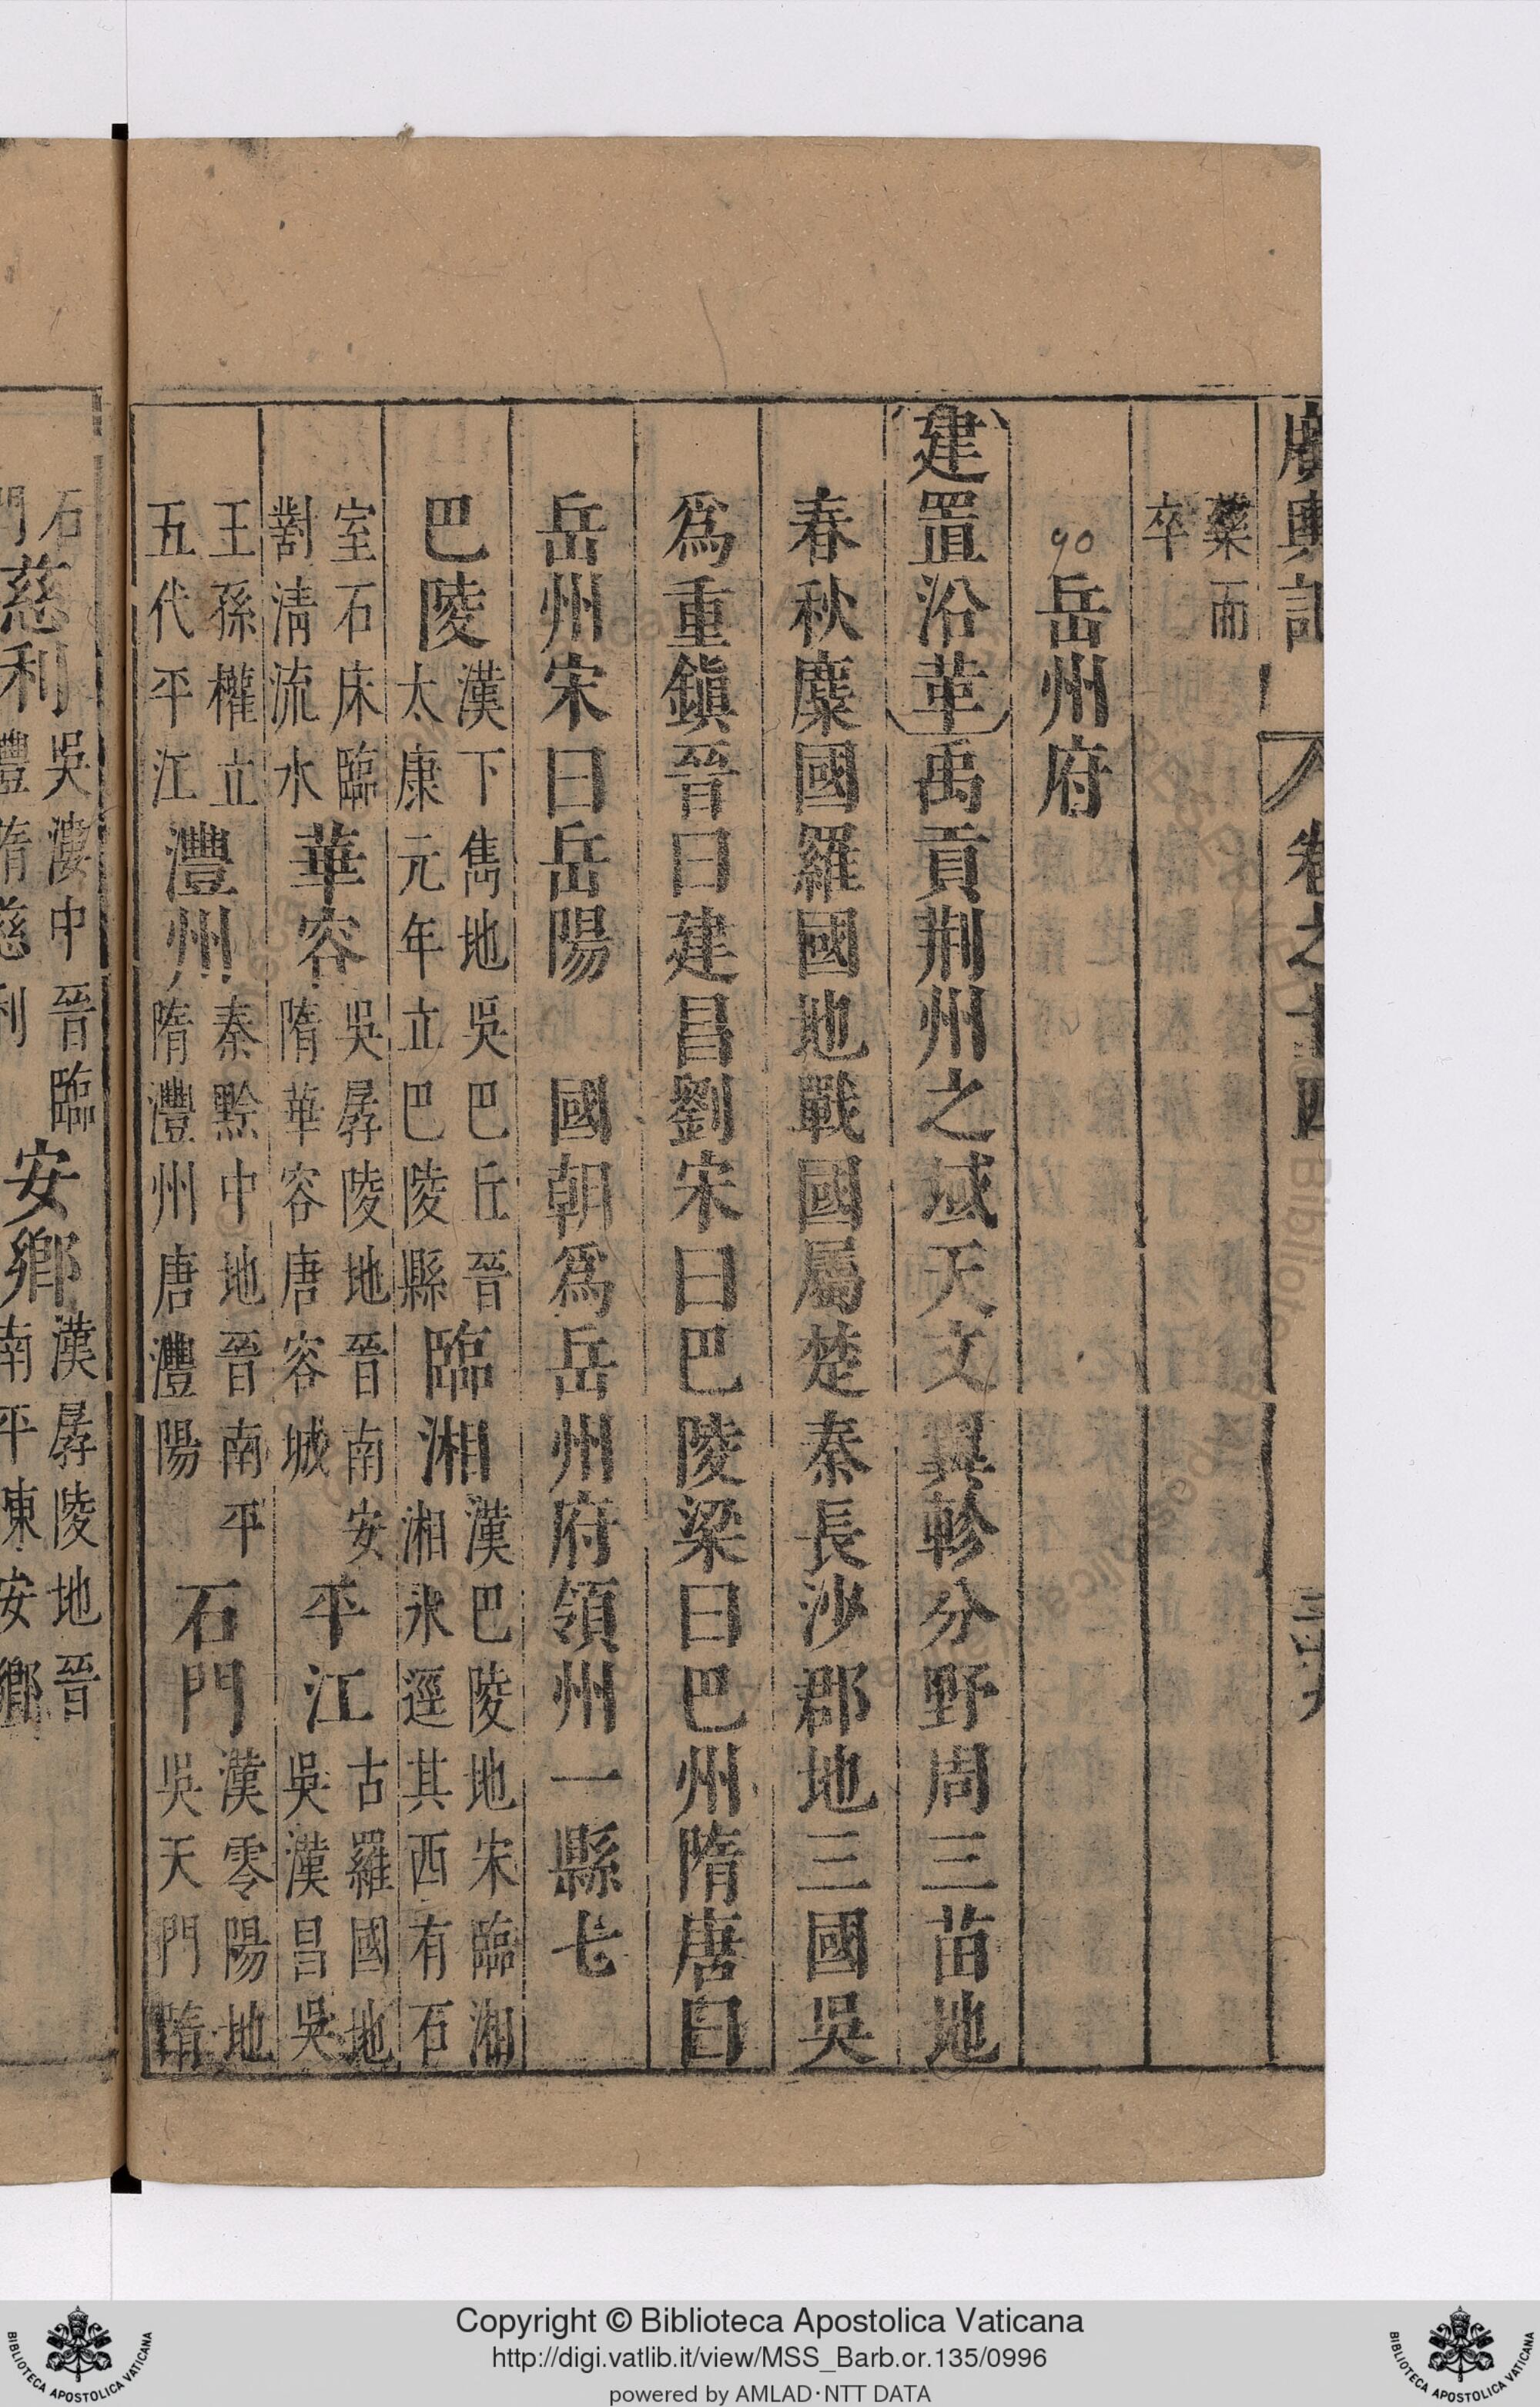 廣輿記
卷之十四
而
卒
90
岳州府
建置沿革禹貢荆州之域天文翼軫分野周三苗地
春秋麋國羅國地戰國屬楚秦長沙郡地三國吳
爲重鎭晉曰建昌劉宋曰巴陵梁曰巴州隋唐曰
岳州宋曰岳陽 國朝爲岳州府領州一縣七
巴陵漢下雋地吳巴丘晉太康元年立巴陵縣臨湘漢巴陵地宋臨湘湘水逕其西有石
室石床臨劃清流水華容吳孱陵地晉南安隋華容唐容城平江古羅國地吳漢昌吳
王孫權立五代平江澧州秦黔中地晉南平隋澧州唐澧陽石門漢零陽地吳天門隋
石門慈利吳漊中晉臨澧隋慈利安鄉漢孱陵地晉南平陳安鄉
Copyright © Biblioteca Apostolica Vaticana
http://digi.vatlib.it/view/MSS_Barb.or.135/0996
powered by AMLAD·NTT DATA
BIBLIOTECA APOSTOLICA VATICANA
BIBLIOTECA APOSTOLICA VATICANA